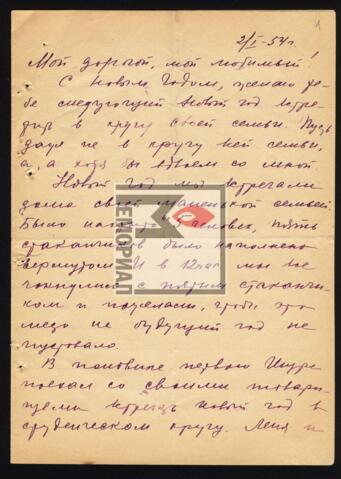 2/I-54 г.
Мой дорогой, мой любимый!
С Новым Годом, желаю те-
бе следующий Новый год встре-
тить в кругу своей семьи. Пусть
даже не в кругу всей семьи,
а, а хотя бы вдвоем со мной.
Новый год мы встречали
дома своей маленькой семьей.
Было нас 5 человек, пять
стаканчиков было наполнено
вермутом. И в 12 час мы все
чокнулись с пятым стаканчи-
ком и пожелали, чтобы это
место на будущий год не
пустовало.
В половине первого
поехал со своими товари-
щами встречать Новый год в
студенческом кругу. Леня и
МЕМОРИАЛ